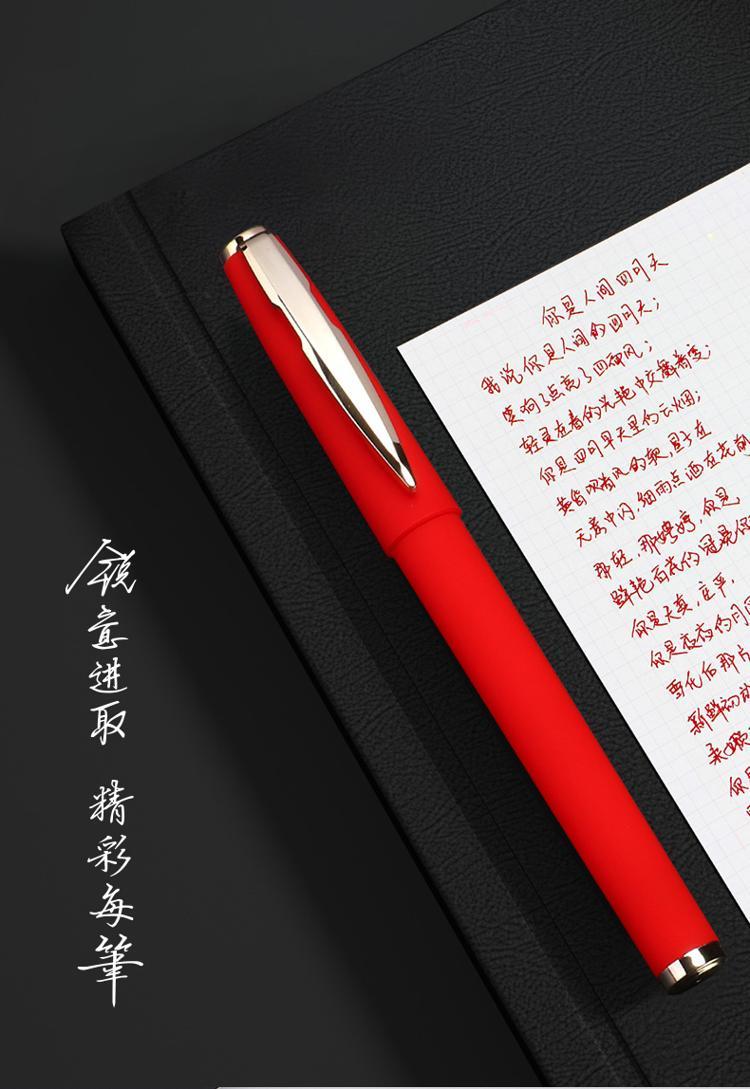 锐意进取 精彩每筆
你是人间四月天
我说你是人间的四月天；
笑响了点亮了四面风；
轻灵在春的光艳中交舞着变；
你是四月早天里的云烟；
黄昏吹着风的软,星子在
无意中闪,细雨点洒在花前
那轻,那娉婷,你是
鲜艳百花的冠冕你
你是天真,庄严,
你是夜夜的月圆
雪化后那片
新鲜初放
柔嫩
你是